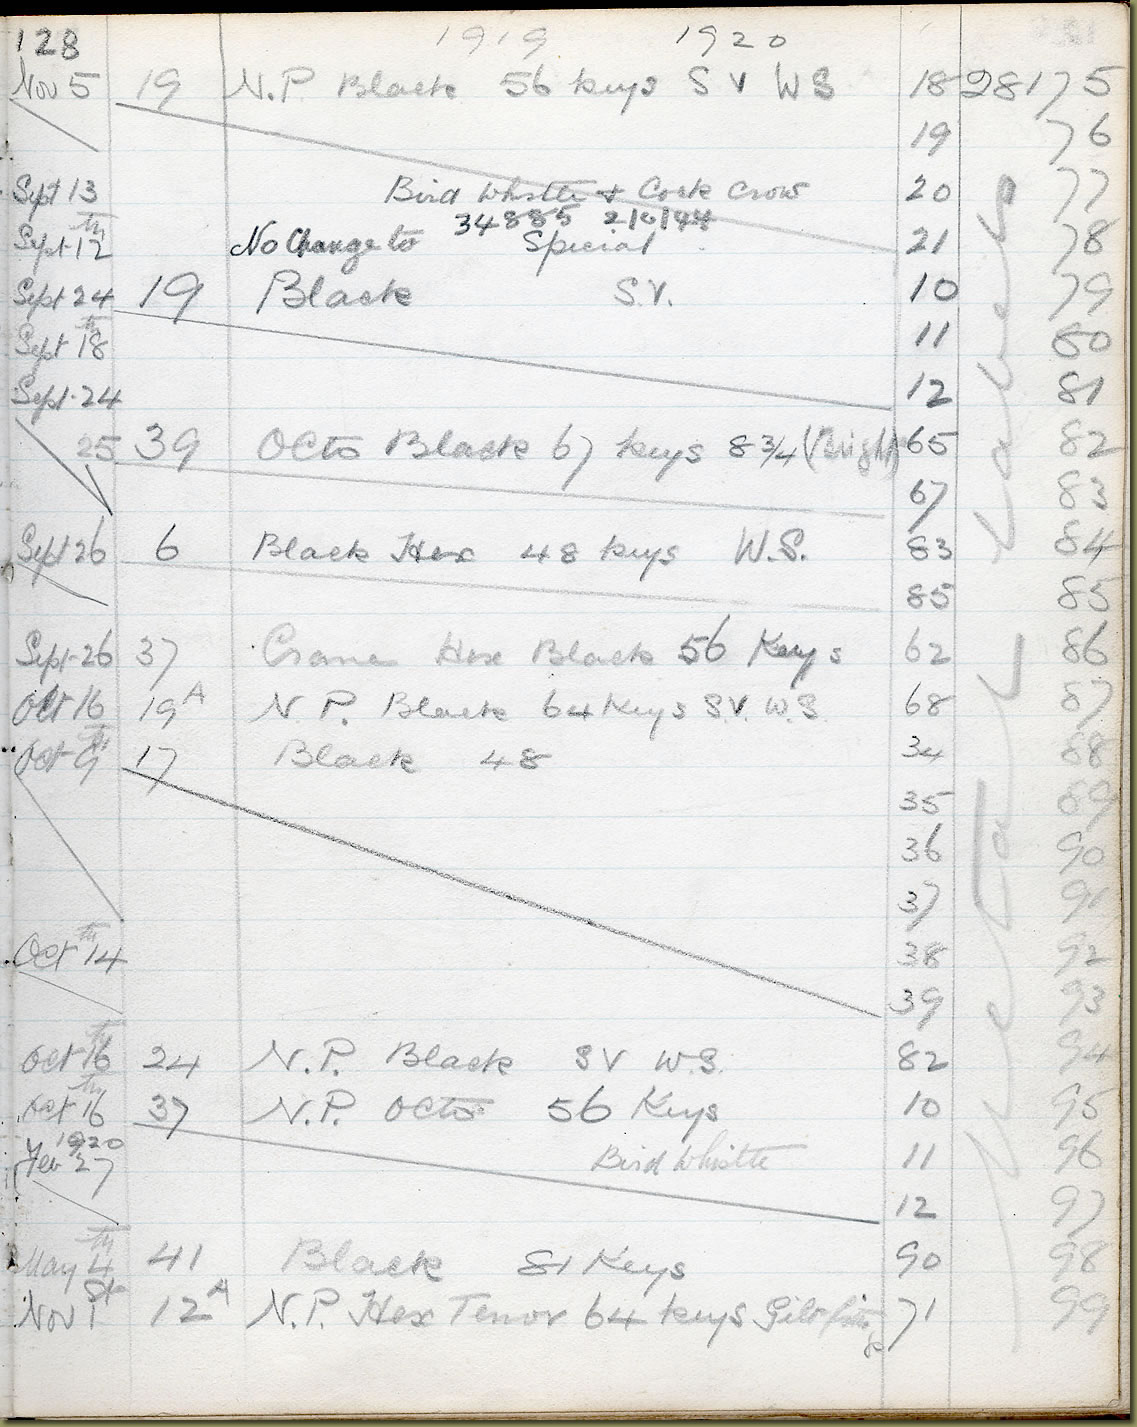 128 1919 1920
Nov 5 19 N.P. Black 56 keys S V W S 18 28175
19 76
Sept 13 Bird Whistle & Cock Crow 20 77
34885 2/6/44
Sept 12th No Change to Special 21 78
Sept 24 19 Black S.V. 10 79
Sept 18th 11 80
Sept. 24 12 81
25 39 Octo Black 67 keys 8 3/4 (Bright) 65 82
67 83
Sept 26 6 Black Hex 48 keys W.S. 83 84
85 85
Sept 26 37 Crane Hex Black 56 Keys 62 86
Oct 16 19A N.P. Black 64 Keys S.V. W.S. 68 87
Oct 9th 17 Black 48 34 88
35 89
36 90
37 91
Oct 14th 38 92
39 93
Oct 16th 24 N.P. Black S V W.S. 82 94
Oct 16th 37 N.P. Octo 56 Keys 10 95
1920
Feb 27 Bird Whistle 11 96
12 97
May 4th 41 Black 81 Keys 90 98
Nov 1st 12A N.P. Hex Tenor 64 keys Gilt 71 99